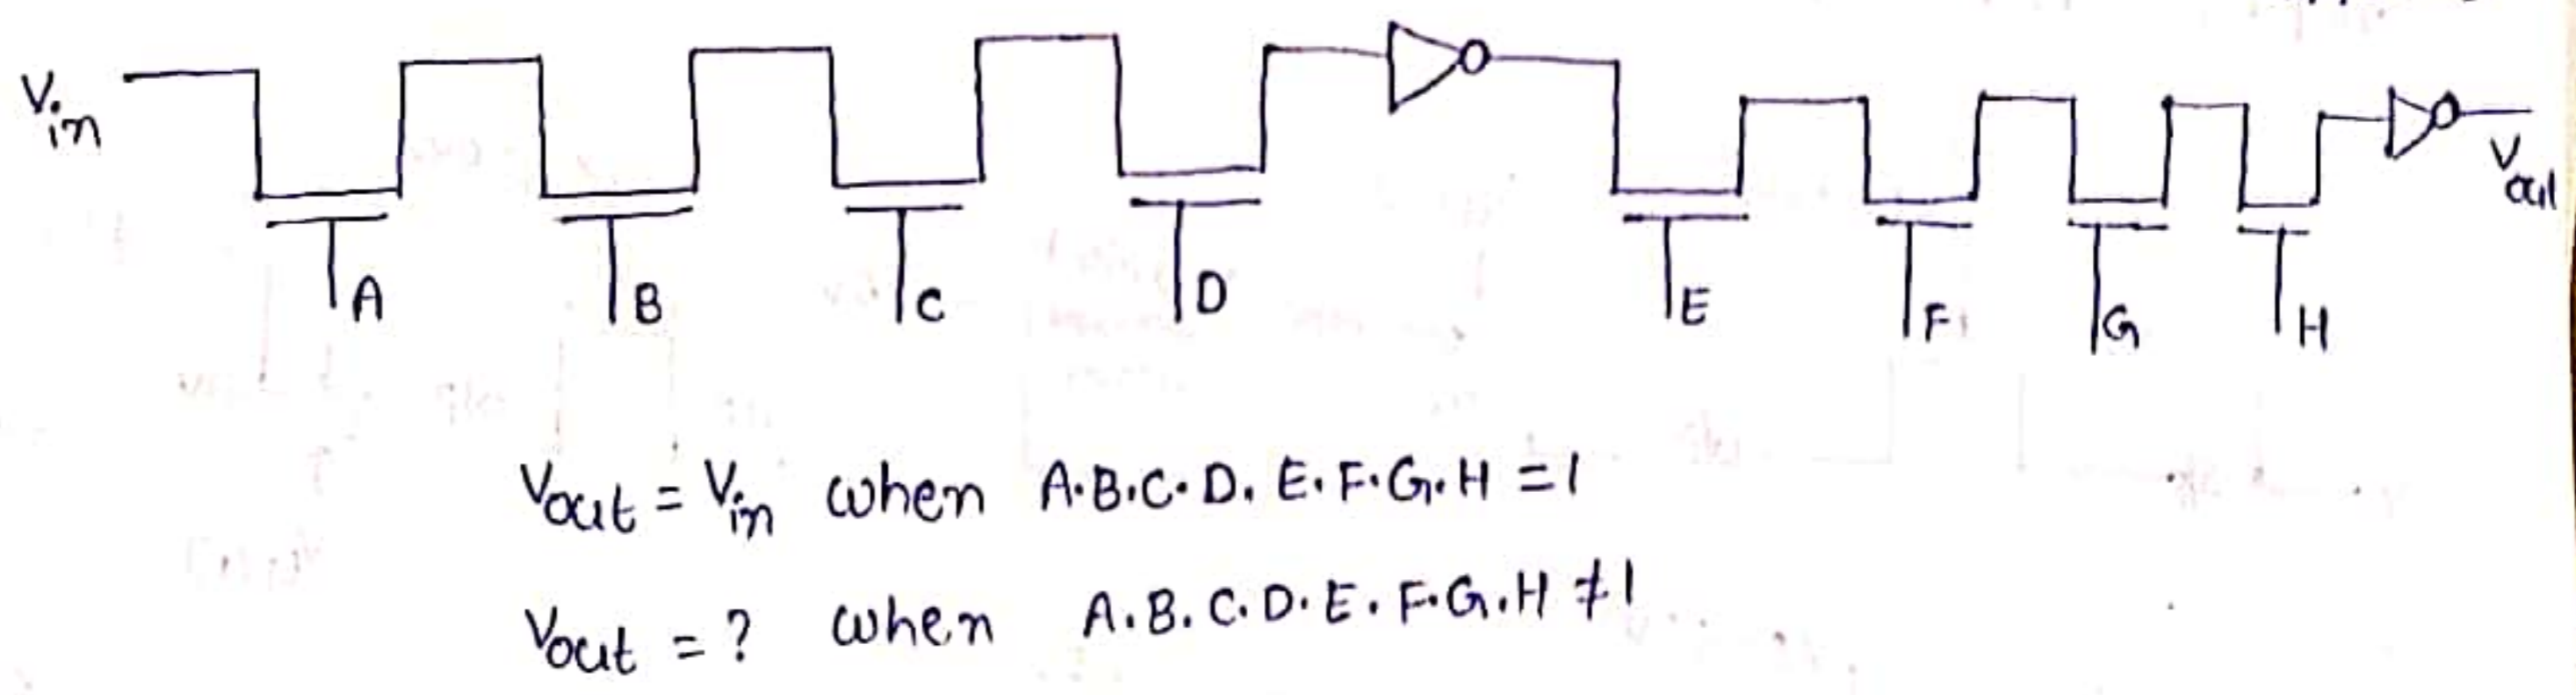 Vin
A B C D E F G H
Vout
Vout = Vin when A.B.C.D.E.F.G.H = 1
Vout = ? when A.B.C.D.E.F.G.H ≠ 1